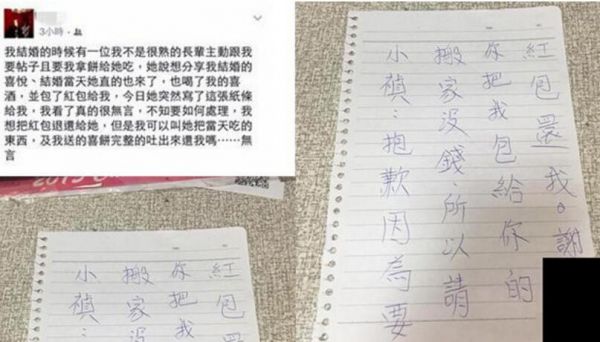 3小時
我結婚的時候有一位我不是很熟的長輩主動跟我
要帖子且要我拿餅給她吃，她說想分享我結婚的
喜悅、結婚當天她真的也來了，也喝了我的喜
酒，並包了紅包給我，今日她突然寫了這張紙條
給我，我看了真的很無言，不知要如何處理，我
想把紅包退還給她，但是我可以叫她把當天吃的
東西，及我送的喜餅完整的吐出來還我嗎……無
言
小禎：
搬家沒
你把我
紅包
小禎：抱歉因為要
搬家沒錢，所以請
你把我包給你的
紅包還我。謝